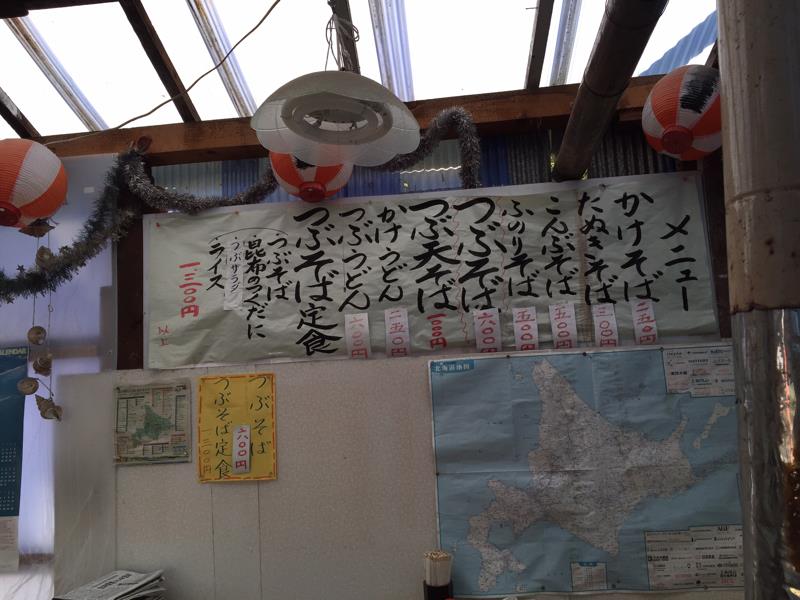 メニュー
かけそば 二五〇
たぬきそば 三〇〇
こんぶそば 五〇〇
ふのりそば 五〇〇
つぶそば 六〇〇
つぶ天そば 1000
かけうどん 二五〇
つぶうどん 六〇〇
つぶそば定食
つぶそば
昆布のつくだに
つぶサラダ
ライス
一、三〇〇円
以上
つぶそば
六〇〇円
つぶそば定食
一三〇〇円
北海道地図
CALENDAR